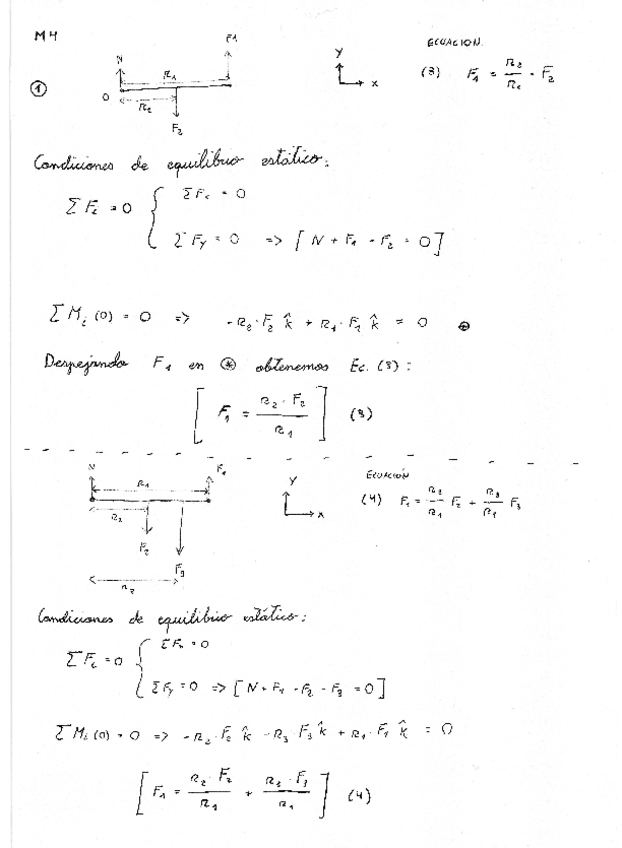 M4
F1
N
R₁
①
O
R₂
F₂
Y
x
ECUACION.
(3) F₁ = R₂/R₁ · F₂
Condiciones de equilibrio estático:
Σ Fᵢ = 0 { Σ Fₓ = 0
Σ Fy = 0 => [ N + F₁ - F₂ = 0 ]
Σ Mᵢ (0) = 0 => -R₂ · F₂ k̂ + R₁ · F₁ k̂ = 0 ⊛
Despejando F₁ en ⊛ obtenemos Ec. (3) :
[ F₁ = R₂ · F₂ / R₁ ] (3)
N
F₁
R₁
R₂
F₂
F₃
Y
x
ECUACIÓN
(4) F₁ = R₂/R₁ F₂ + R₃/R₁ F₃
Condiciones de equilibrio estático:
Σ Fᵢ = 0 { Σ Fₓ = 0
Σ Fy = 0 => [ N + F₁ - F₂ - F₃ = 0 ]
Σ Mᵢ (0) = 0 => -R₂ · F₂ k̂ - R₃ F₃ k̂ + R₁ · F₁ k̂ = 0
[ F₁ = R₂ · F₂ / R₁ + R₃ · F₃ / R₁ ] (4)